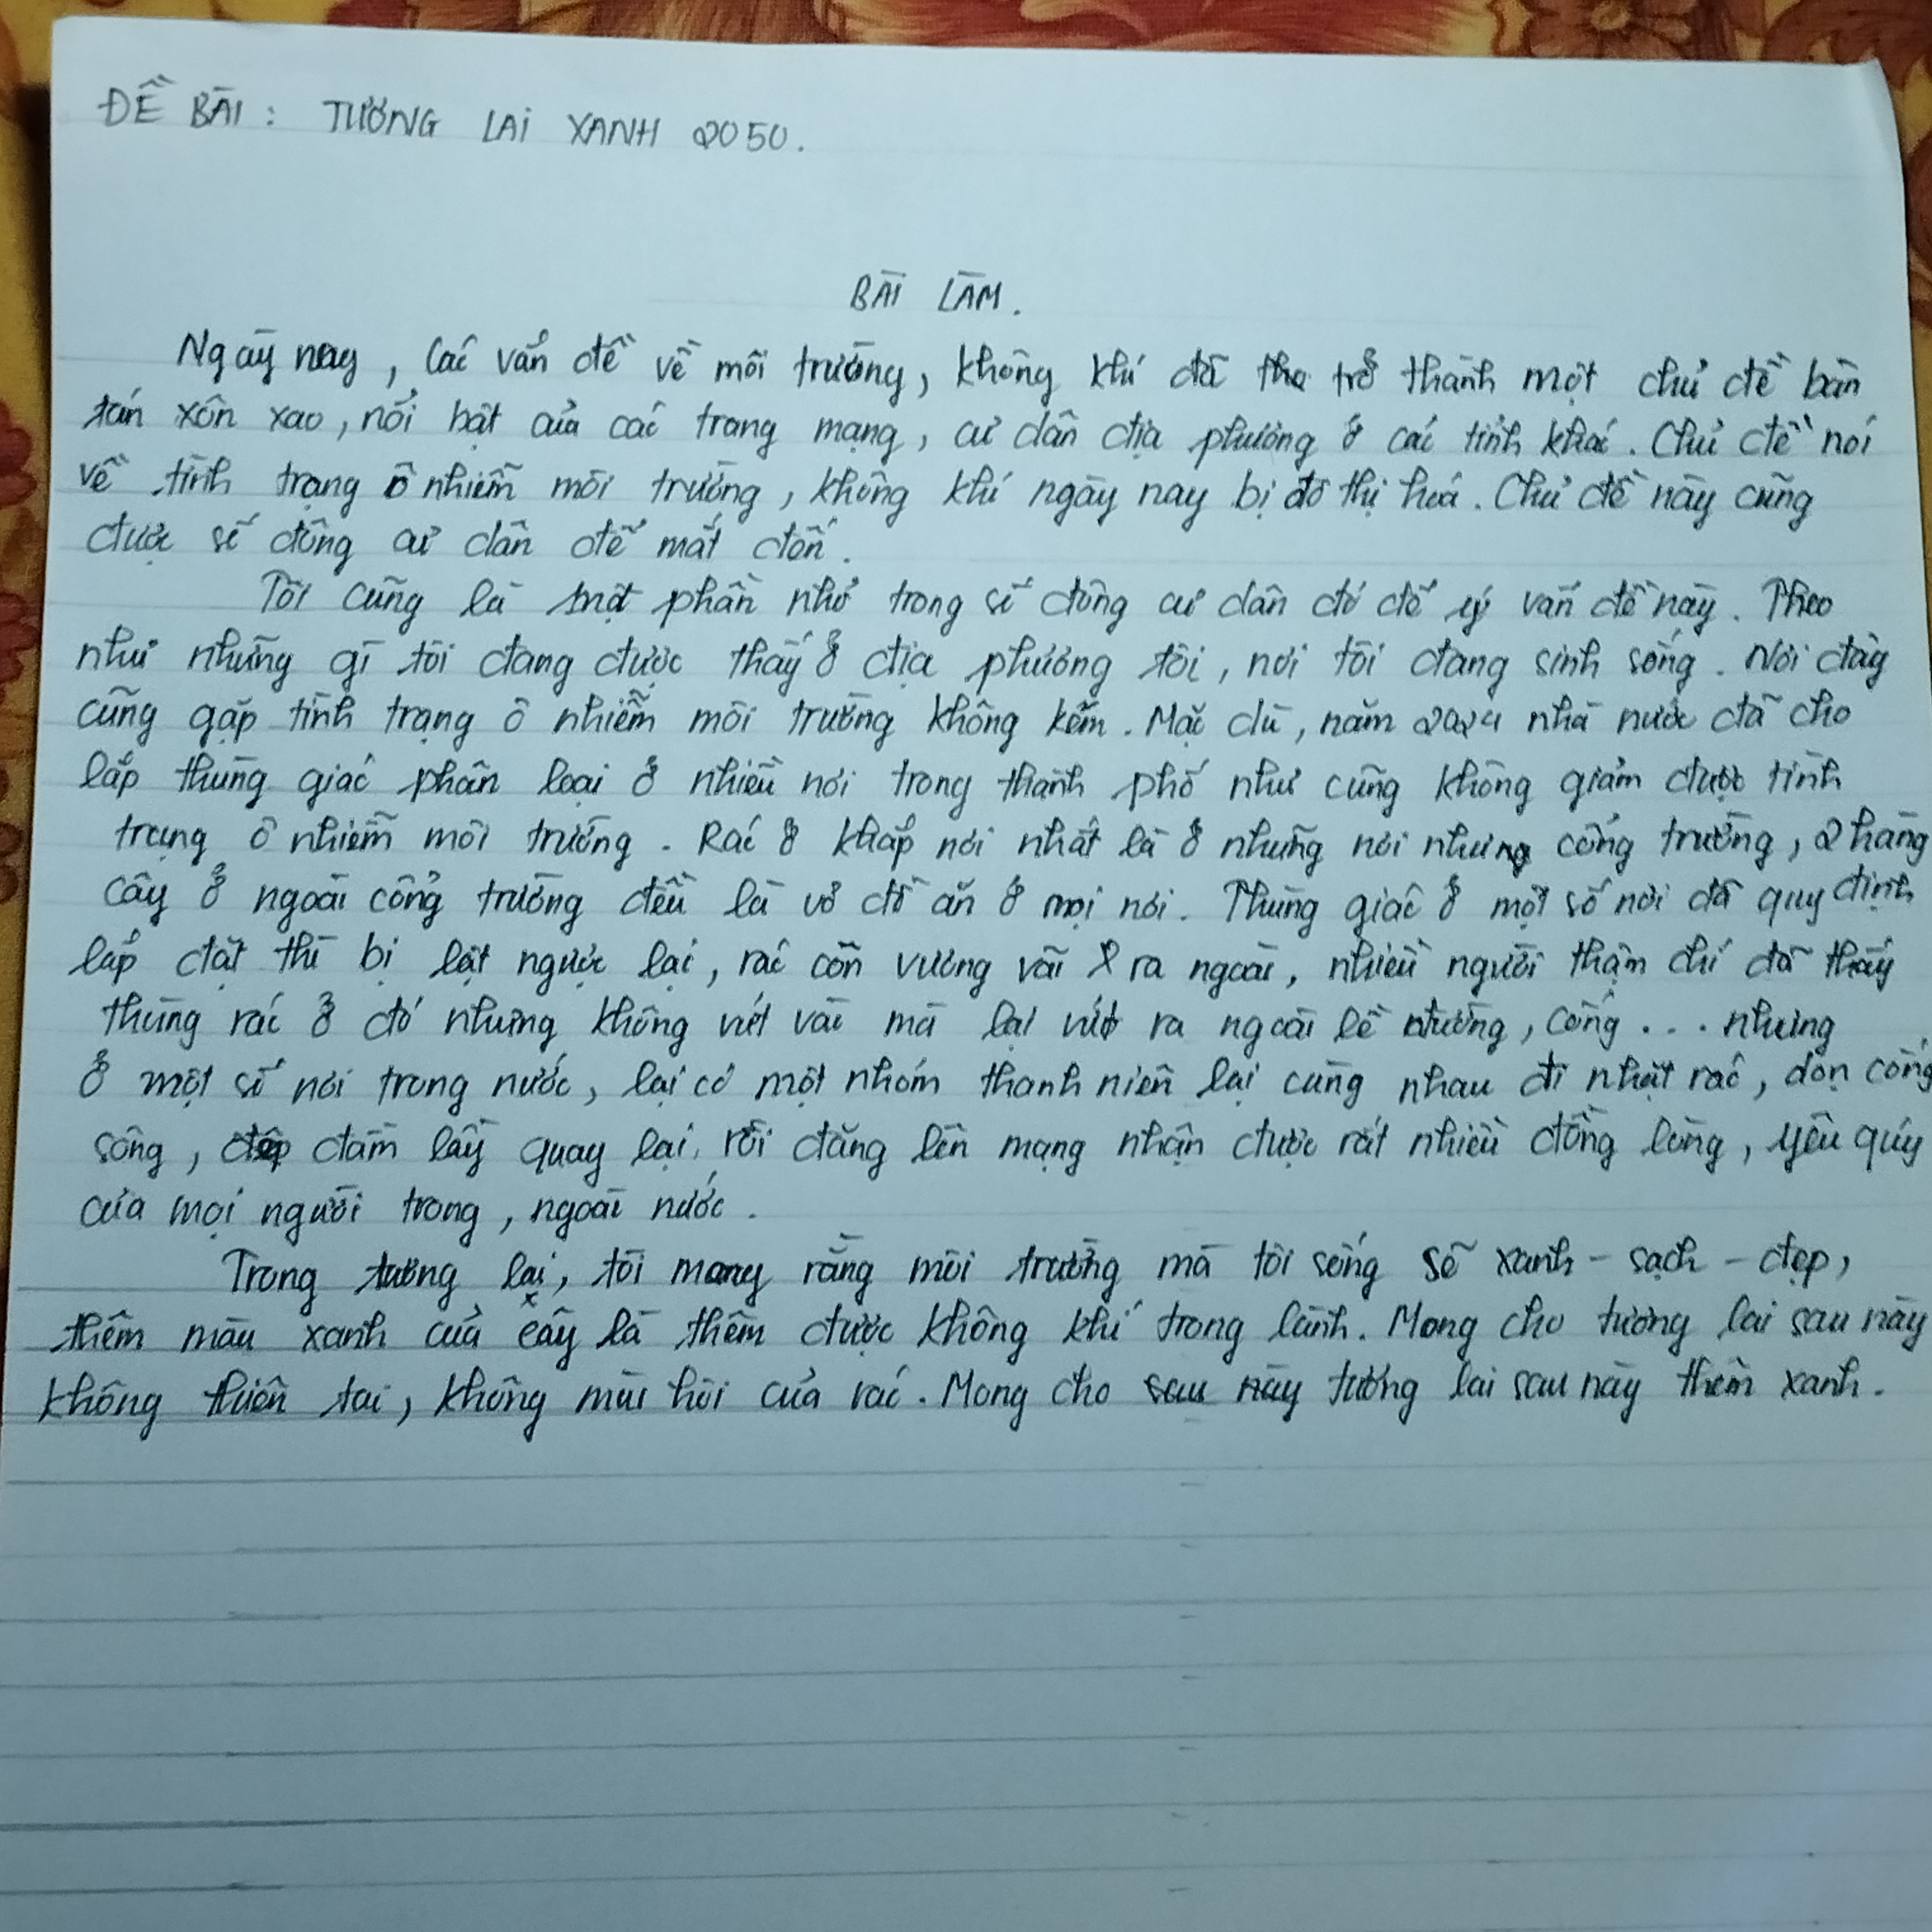 ĐỀ BÀI : TƯƠNG LAI XANH 2050.
BÀI LÀM.
Ngày nay, các vấn đề về môi trường, không khí đã trở thành một chủ đề bàn
tán xôn xao, nổi bật của các trang mạng, cư dân địa phương ở các tỉnh khác. Chủ đề nói
về tình trạng ô nhiễm môi trường, không khí ngày nay bị đô thị hoá. Chủ đề này cũng
được số đông cư dân để mắt đến.
Tôi cũng là một phần nhỏ trong số đông cư dân đó để ý vấn đề này. Theo
như những gì tôi đang được thấy ở địa phương tôi, nơi tôi đang sinh sống. Nơi đây
cũng gặp tình trạng ô nhiễm môi trường không kém. Mặc dù, năm 2024 nhà nước đã cho
lắp thùng giác phân loại ở nhiều nơi trong thành phố như cũng không giảm được tình
trạng ô nhiễm môi trường. Rác ở khắp nơi nhất là ở những nơi như cổng trường, 2 hàng
cây ở ngoài cổng trường đều là vỏ đồ ăn ở mọi nơi. Thùng giác ở một số nơi đã quy định
lắp đặt thì bị lật ngược lại, rác còn vương vãi ra ngoài, nhiều người thậm chí đã thấy
thùng rác ở đó nhưng không vứt vào mà lại vứt ra ngoài lề đường, cống ... nhưng
ở một số nơi trong nước, lại có một nhóm thanh niên lại cùng nhau đi nhặt rác, dọn cống
sông, đầm lầy quay lại, rồi đăng lên mạng nhận được rất nhiều đồng lòng, yêu quý
của mọi người trong, ngoài nước.
Trong tương lai, tôi mong rằng môi trường mà tôi sống sẽ xanh - sạch - đẹp,
thêm màu xanh của cây là thêm được không khí trong lành. Mong cho tương lai sau này
không thiên tai, không mùi hôi của rác. Mong cho tương lai sau này thêm xanh.